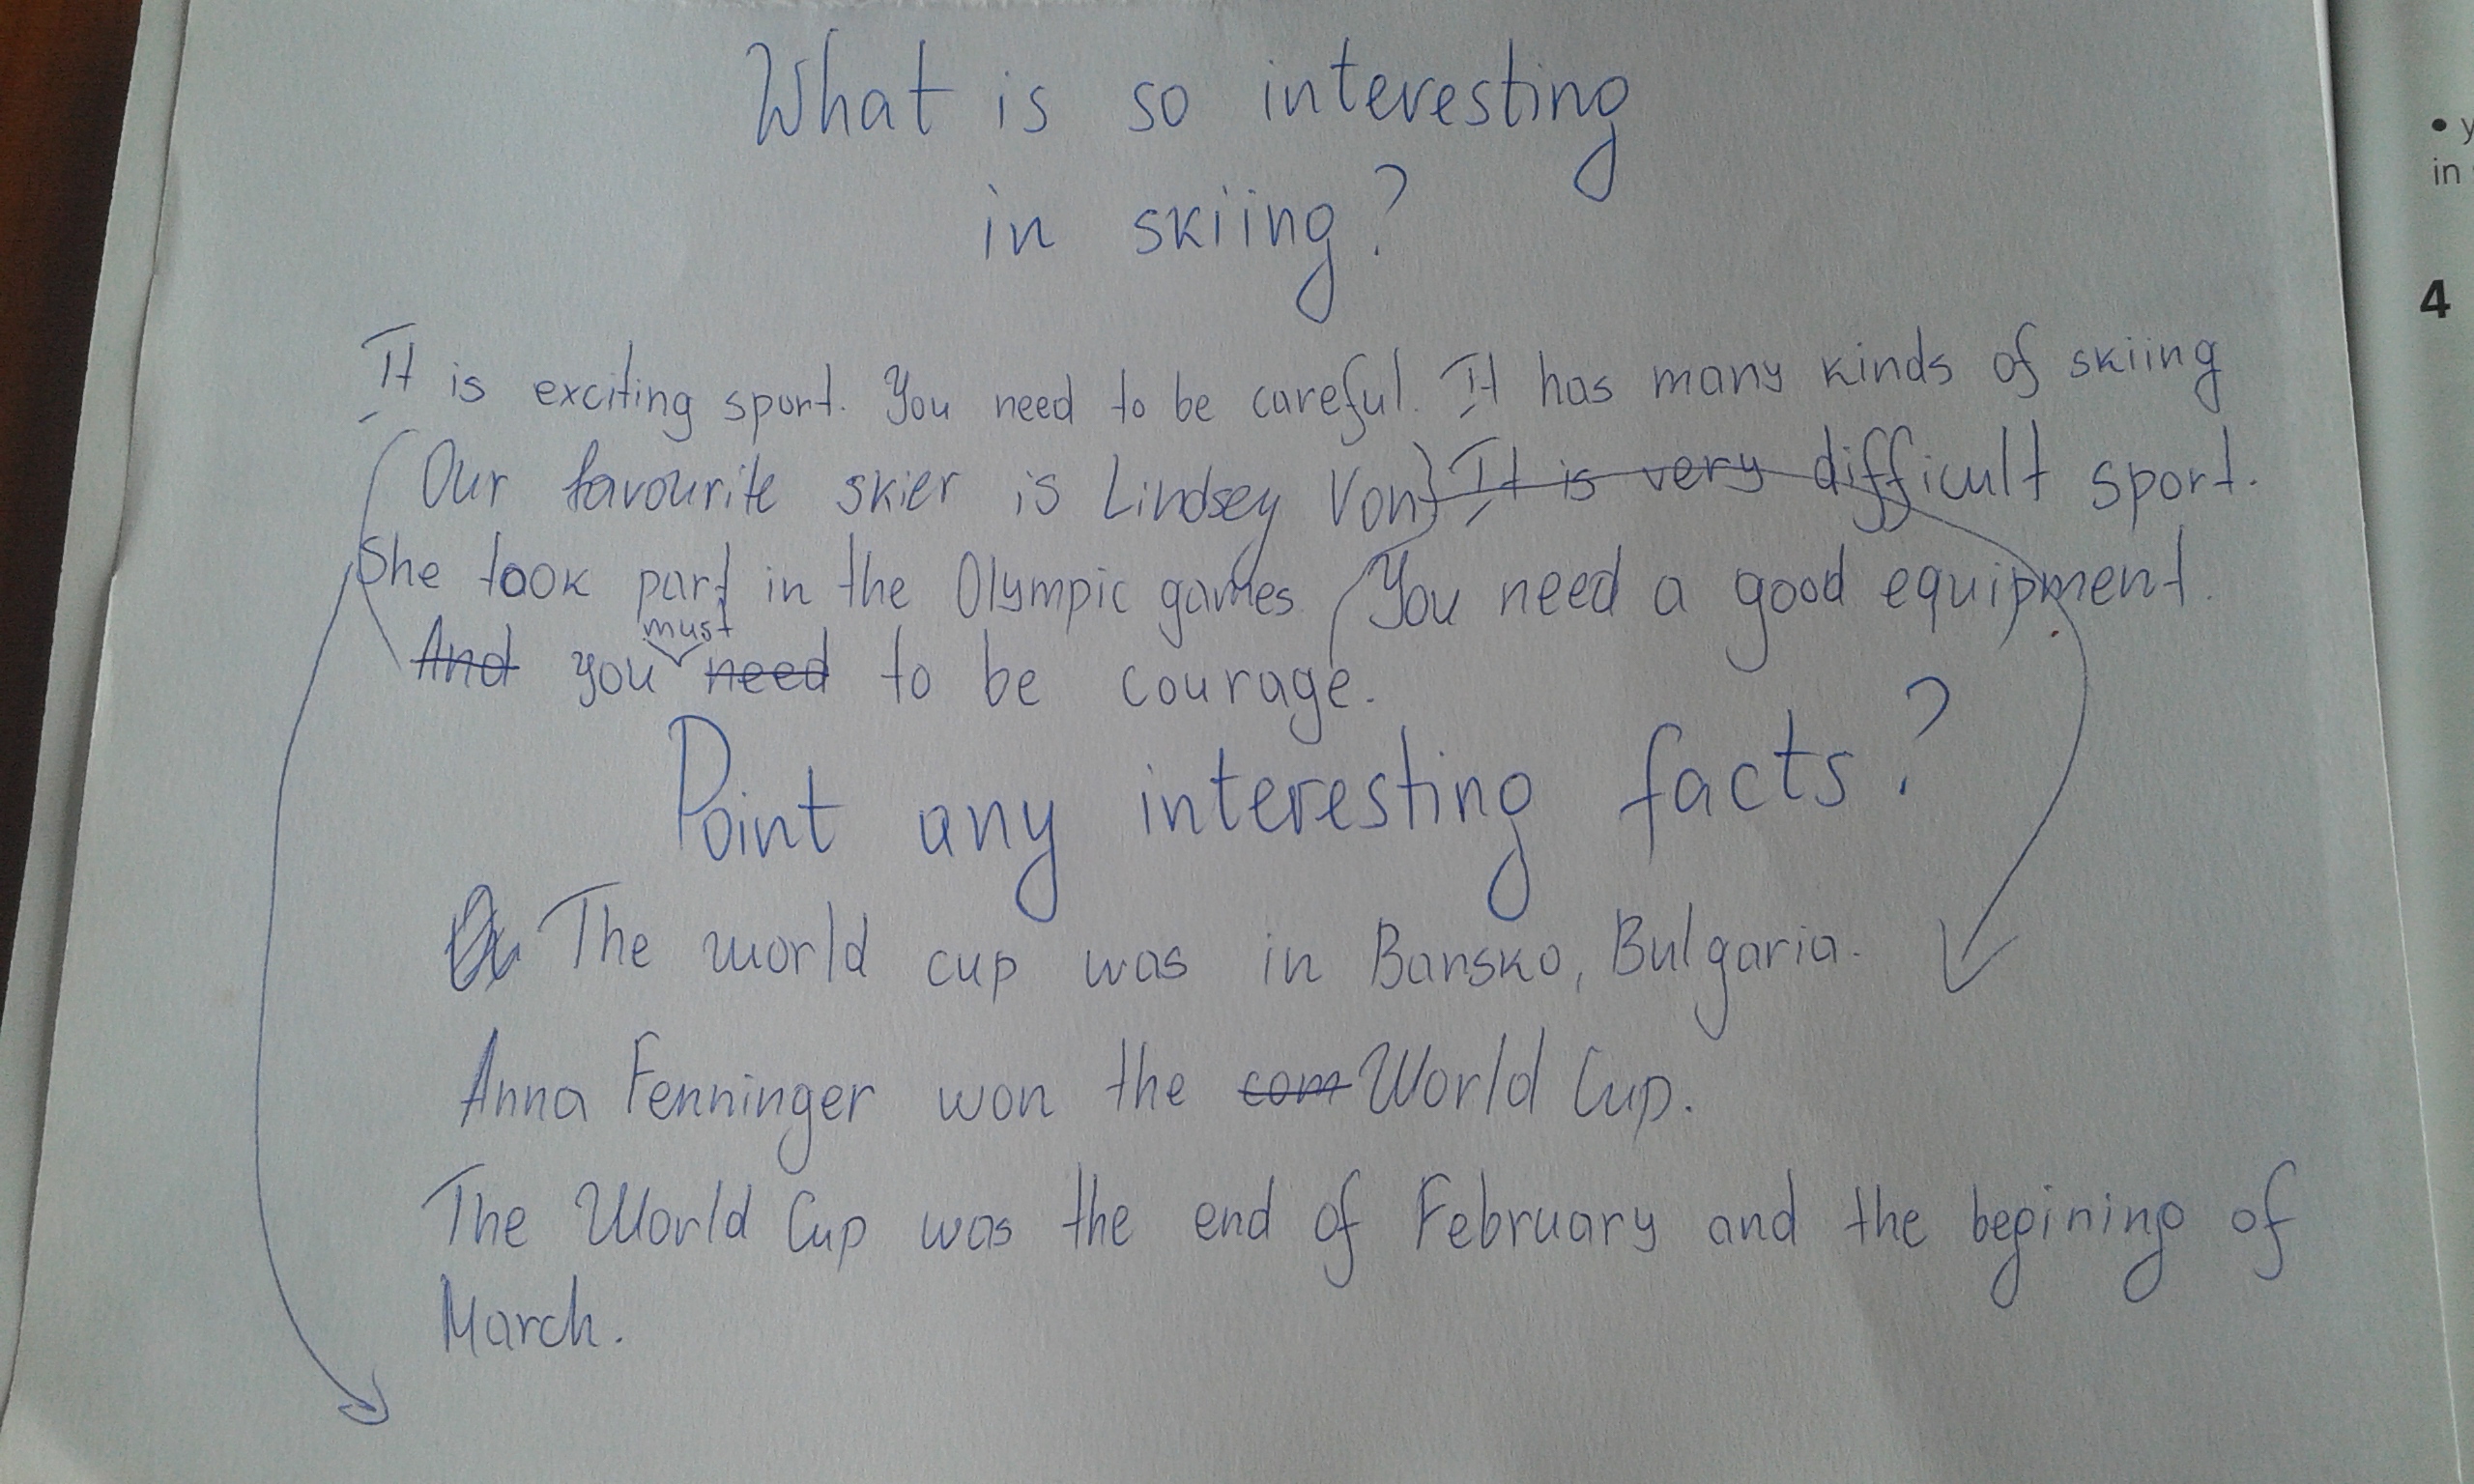 What is so interesting
in skiing?
It is exciting sport. You need to be careful. It has many kinds of skiing
Our favourite skier is Lindsey Von It is very difficult sport.
She took part in the Olympic games. You need a good equipment.
must
And you need to be courage.
Point any interesting facts?
The world cup was in Bansko, Bulgaria.
Anna Fenninger won the com World Cup.
The World Cup was the end of February and the begining of
March.
• y
in
4